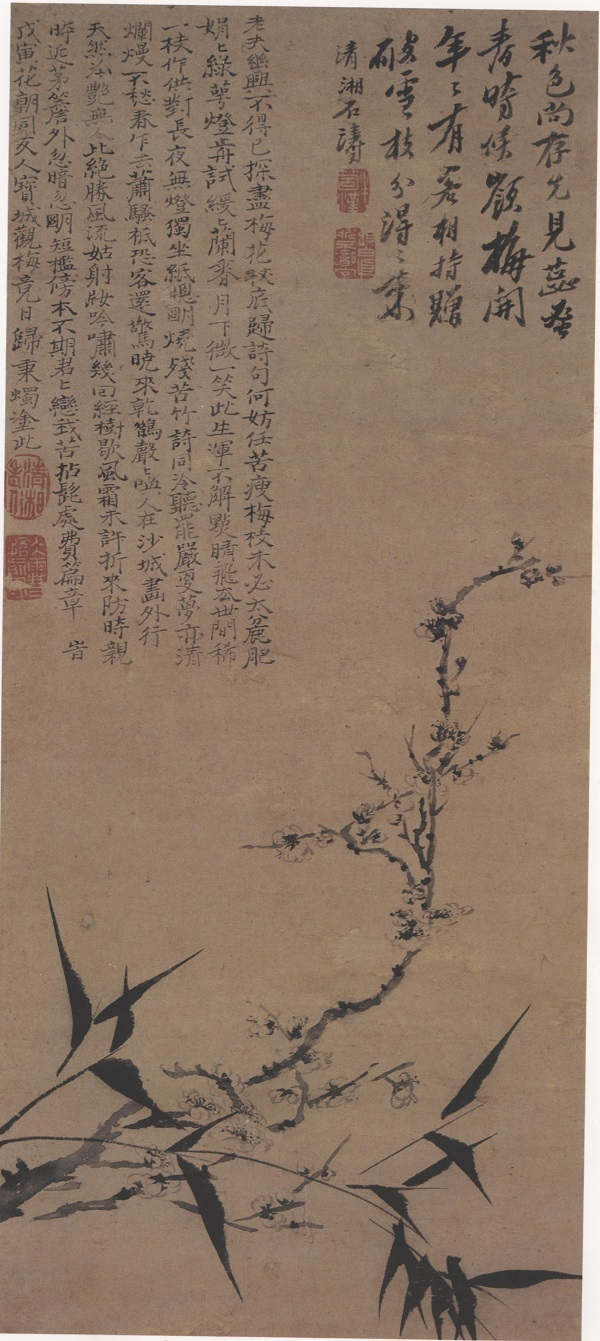 秋色尚存先見蕊蚤
春時候嶺梅開
年年有客相持贈
破雪枝分得得來
清湘石濤
老夫幽興不得已探盡梅花數底歸詩句何妨任苦瘦梅枝未必太麄肥
娟娟綠萼燈前試緩緩蘭香月下微一笑此生渾不解點睛飛去世間稀
一枝作供對長夜無燈獨坐紙牕明燒殘苦竹詩同冷聽罷嚴更夢亦清
爛熳不愁春乍去蕭騷祗恐客還驚曉來乾鵲聲聲噪人在沙城畫外行
天然冷艷無今比絕勝風流姑射妝吟嘯幾回經樹歇風霜未許折來防時親
時近茅簷外忽暗忽明短檻傍本不期君君戀我苦拈髭處費篇章 旹
戊寅花朝同友人寶城觀梅竟日歸秉蠋塗此